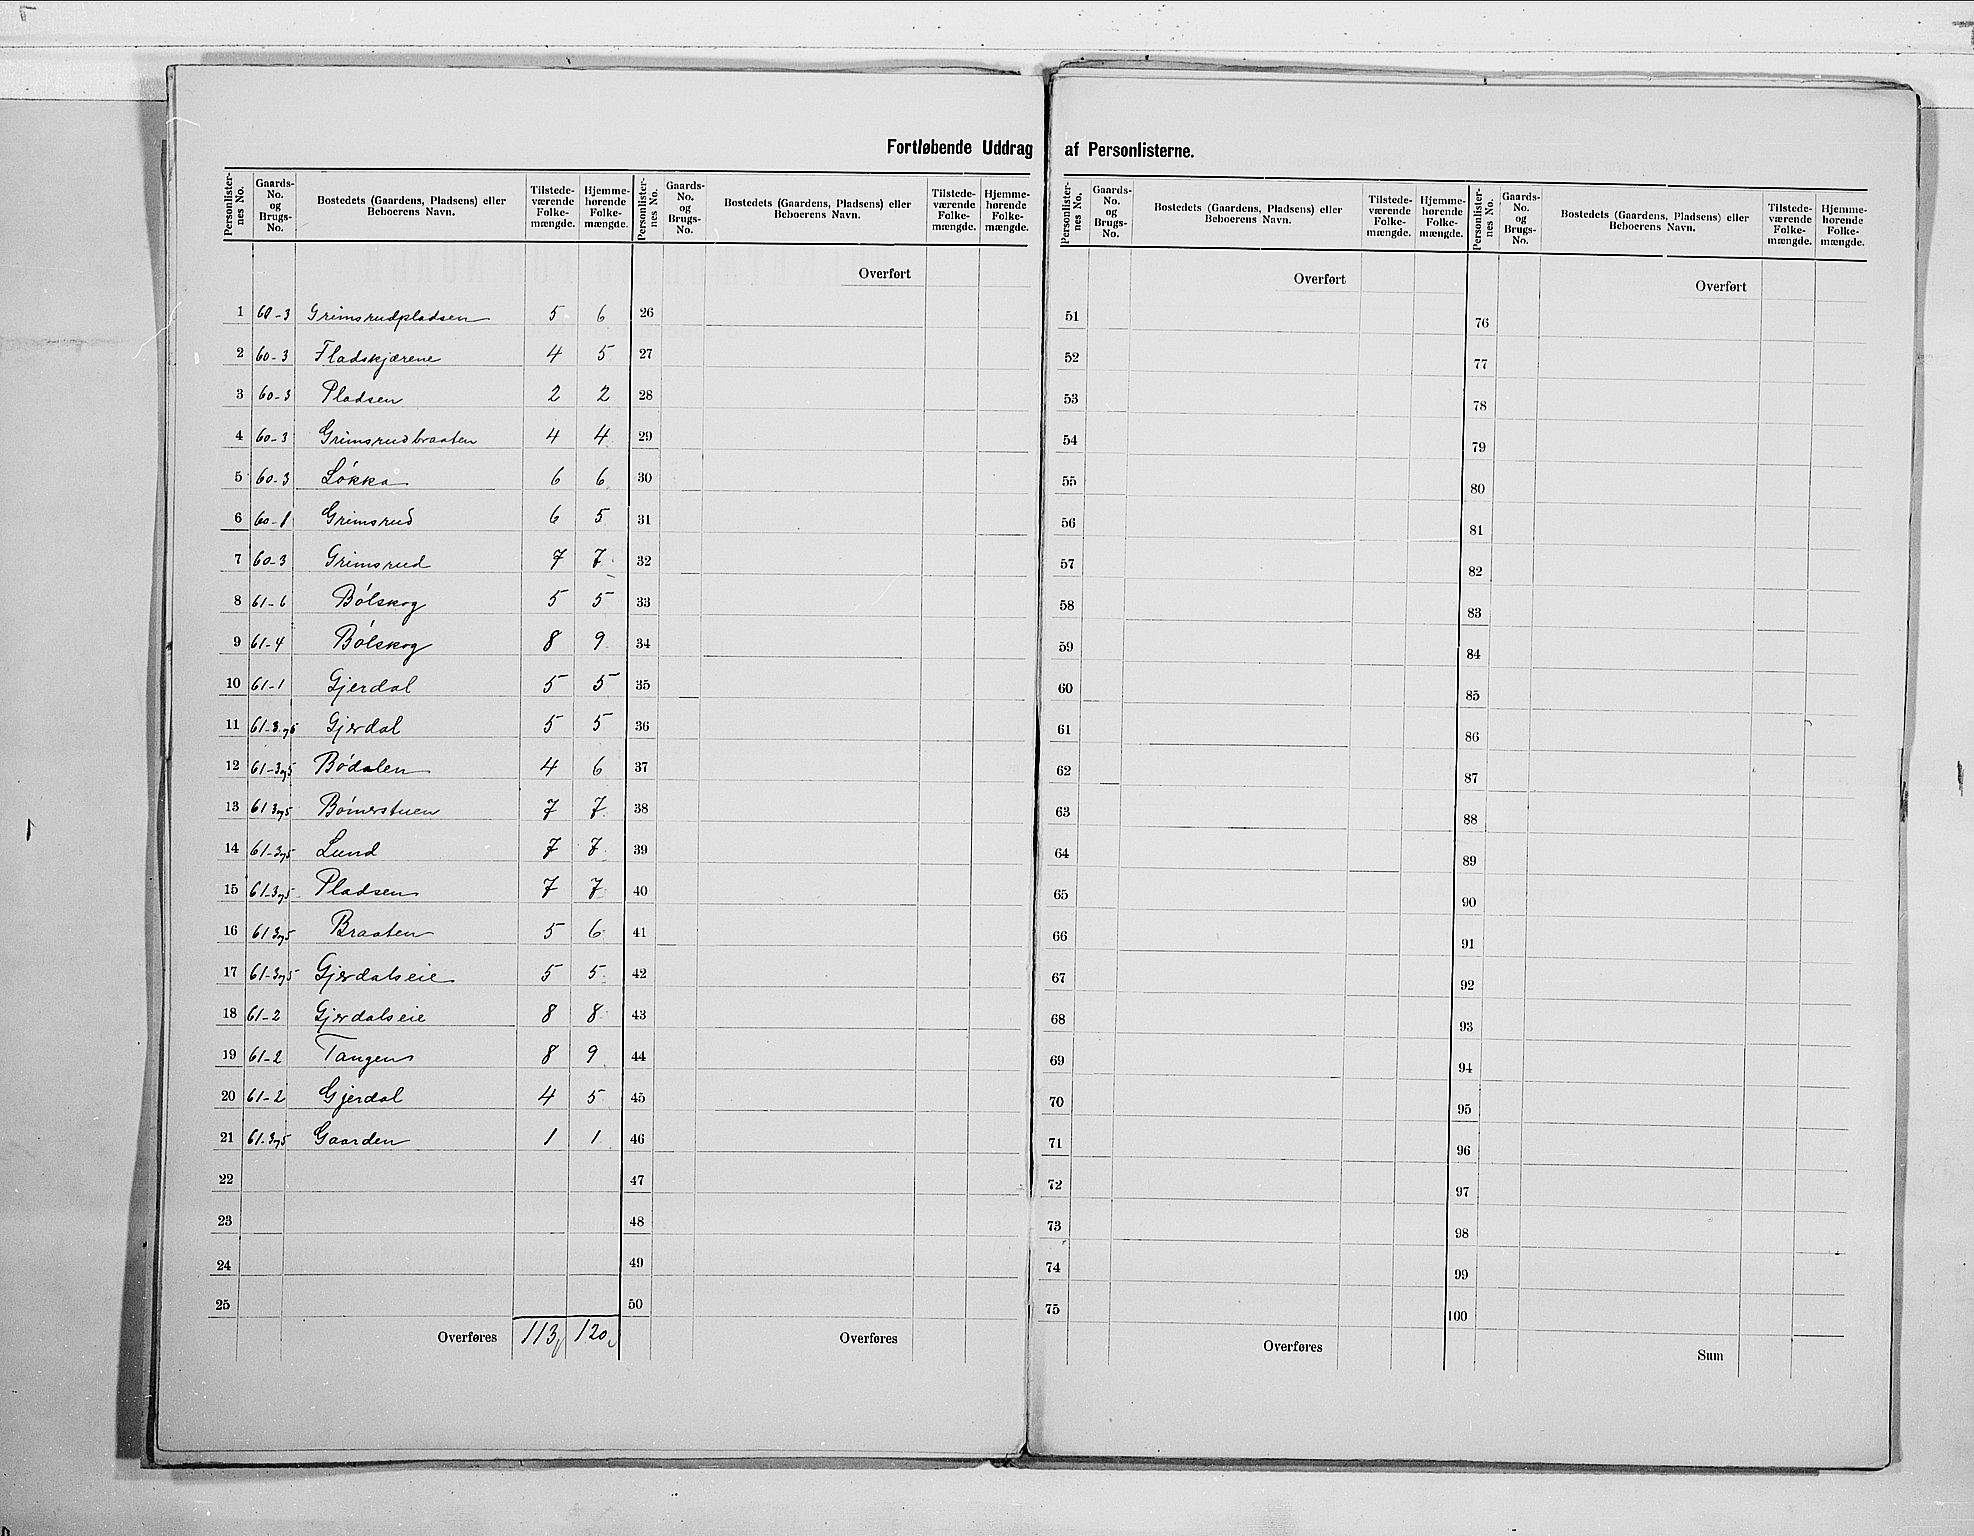 Fortløbende Uddrag af Personlisterne.
Personlister-nes No. | Gaards-No. og Brugs-No. | Bostedets (Gaardens, Pladsens) eller Beboerens Navn. | Tilstede-værende Folke-mængde. | Hjemme-hørende Folke-mængde.
1 60-3 Grimsrudpladsen 5 6
2 60-3 Fladskjærene 4 5
3 60-3 Pladsen 2 2
4 60-3 Grimsrudbraaten 4 4
5 60-3 Løkka 6 6
6 60-1 Grimsrud 6 5
7 60-3 Grimsrud 7 7
8 61-6 Bølskog 5 5
9 61-4 Bølskog 8 9
10 61-1 Gjerdal 5 5
11 61-3 og 5 Gjerdal 5 5
12 61-3 og 5 Bødalen 4 6
13 61 3 og 5 Bømerstuen 7 7
14 61-3 og 5 Lund 7 7
15 61-3 og 5 Pladsen 7 7
16 61 3 og 5 Braaten 5 6
17 61-3 og 5 Gjerdalseie 5 5
18 61-2 Gjerdalseie 8 8
19 61-2 Tangen 8 9
20 61-2 Gjerdal 4 5
21 61-3 og 5 Gaarden 1 1
22
23
24
25
Overføres 113 120
Personlister-nes No. | Gaards-No. og Brugs-No. | Bostedets (Gaardens, Pladsens) eller Beboerens Navn. | Tilstede-værende Folke-mængde. | Hjemme-hørende Folke-mængde.
Overført
26
27
28
29
30
31
32
33
34
35
36
37
38
39
40
41
42
43
44
45
46
47
48
49
50
Overføres
Personlister-nes No. | Gaards-No. og Brugs-No. | Bostedets (Gaardens, Pladsens) eller Beboerens Navn. | Tilstede-værende Folke-mængde. | Hjemme-hørende Folke-mængde.
Overført
51
52
53
54
55
56
57
58
59
60
61
62
63
64
65
66
67
68
69
70
71
72
73
74
75
Overføres
Personlister-nes No. | Gaards-No. og Brugs-No. | Bostedets (Gaardens, Pladsens) eller Beboerens Navn. | Tilstede-værende Folke-mængde. | Hjemme-hørende Folke-mængde.
Overført
76
77
78
79
80
81
82
83
84
85
86
87
88
89
90
91
92
93
94
95
96
97
98
99
100
Sum